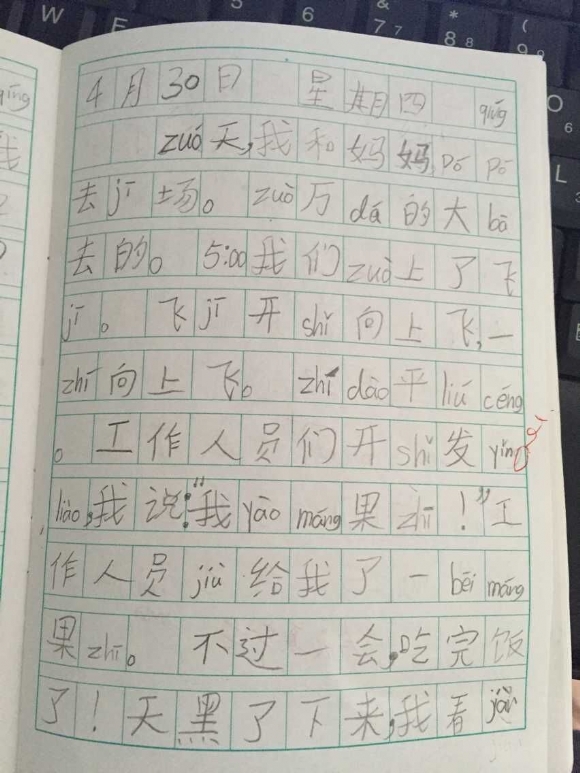 4月30日 星期四 qīng
zuó天,我和妈妈,pó pō
去jī场。zuò万dá的大bā
去的。5:00我们zuò上了飞
jī。飞jī开shǐ向上飞,一
zhī向上飞。zhí dào平liú céng
。工作人员们开shǐ发yǐn
liào,我说:"我yào máng果zhī!"工
作人员jiù给我了一bēi máng
果zhī。不过一会,吃完饭
了!天黑了下来,我看jiàn